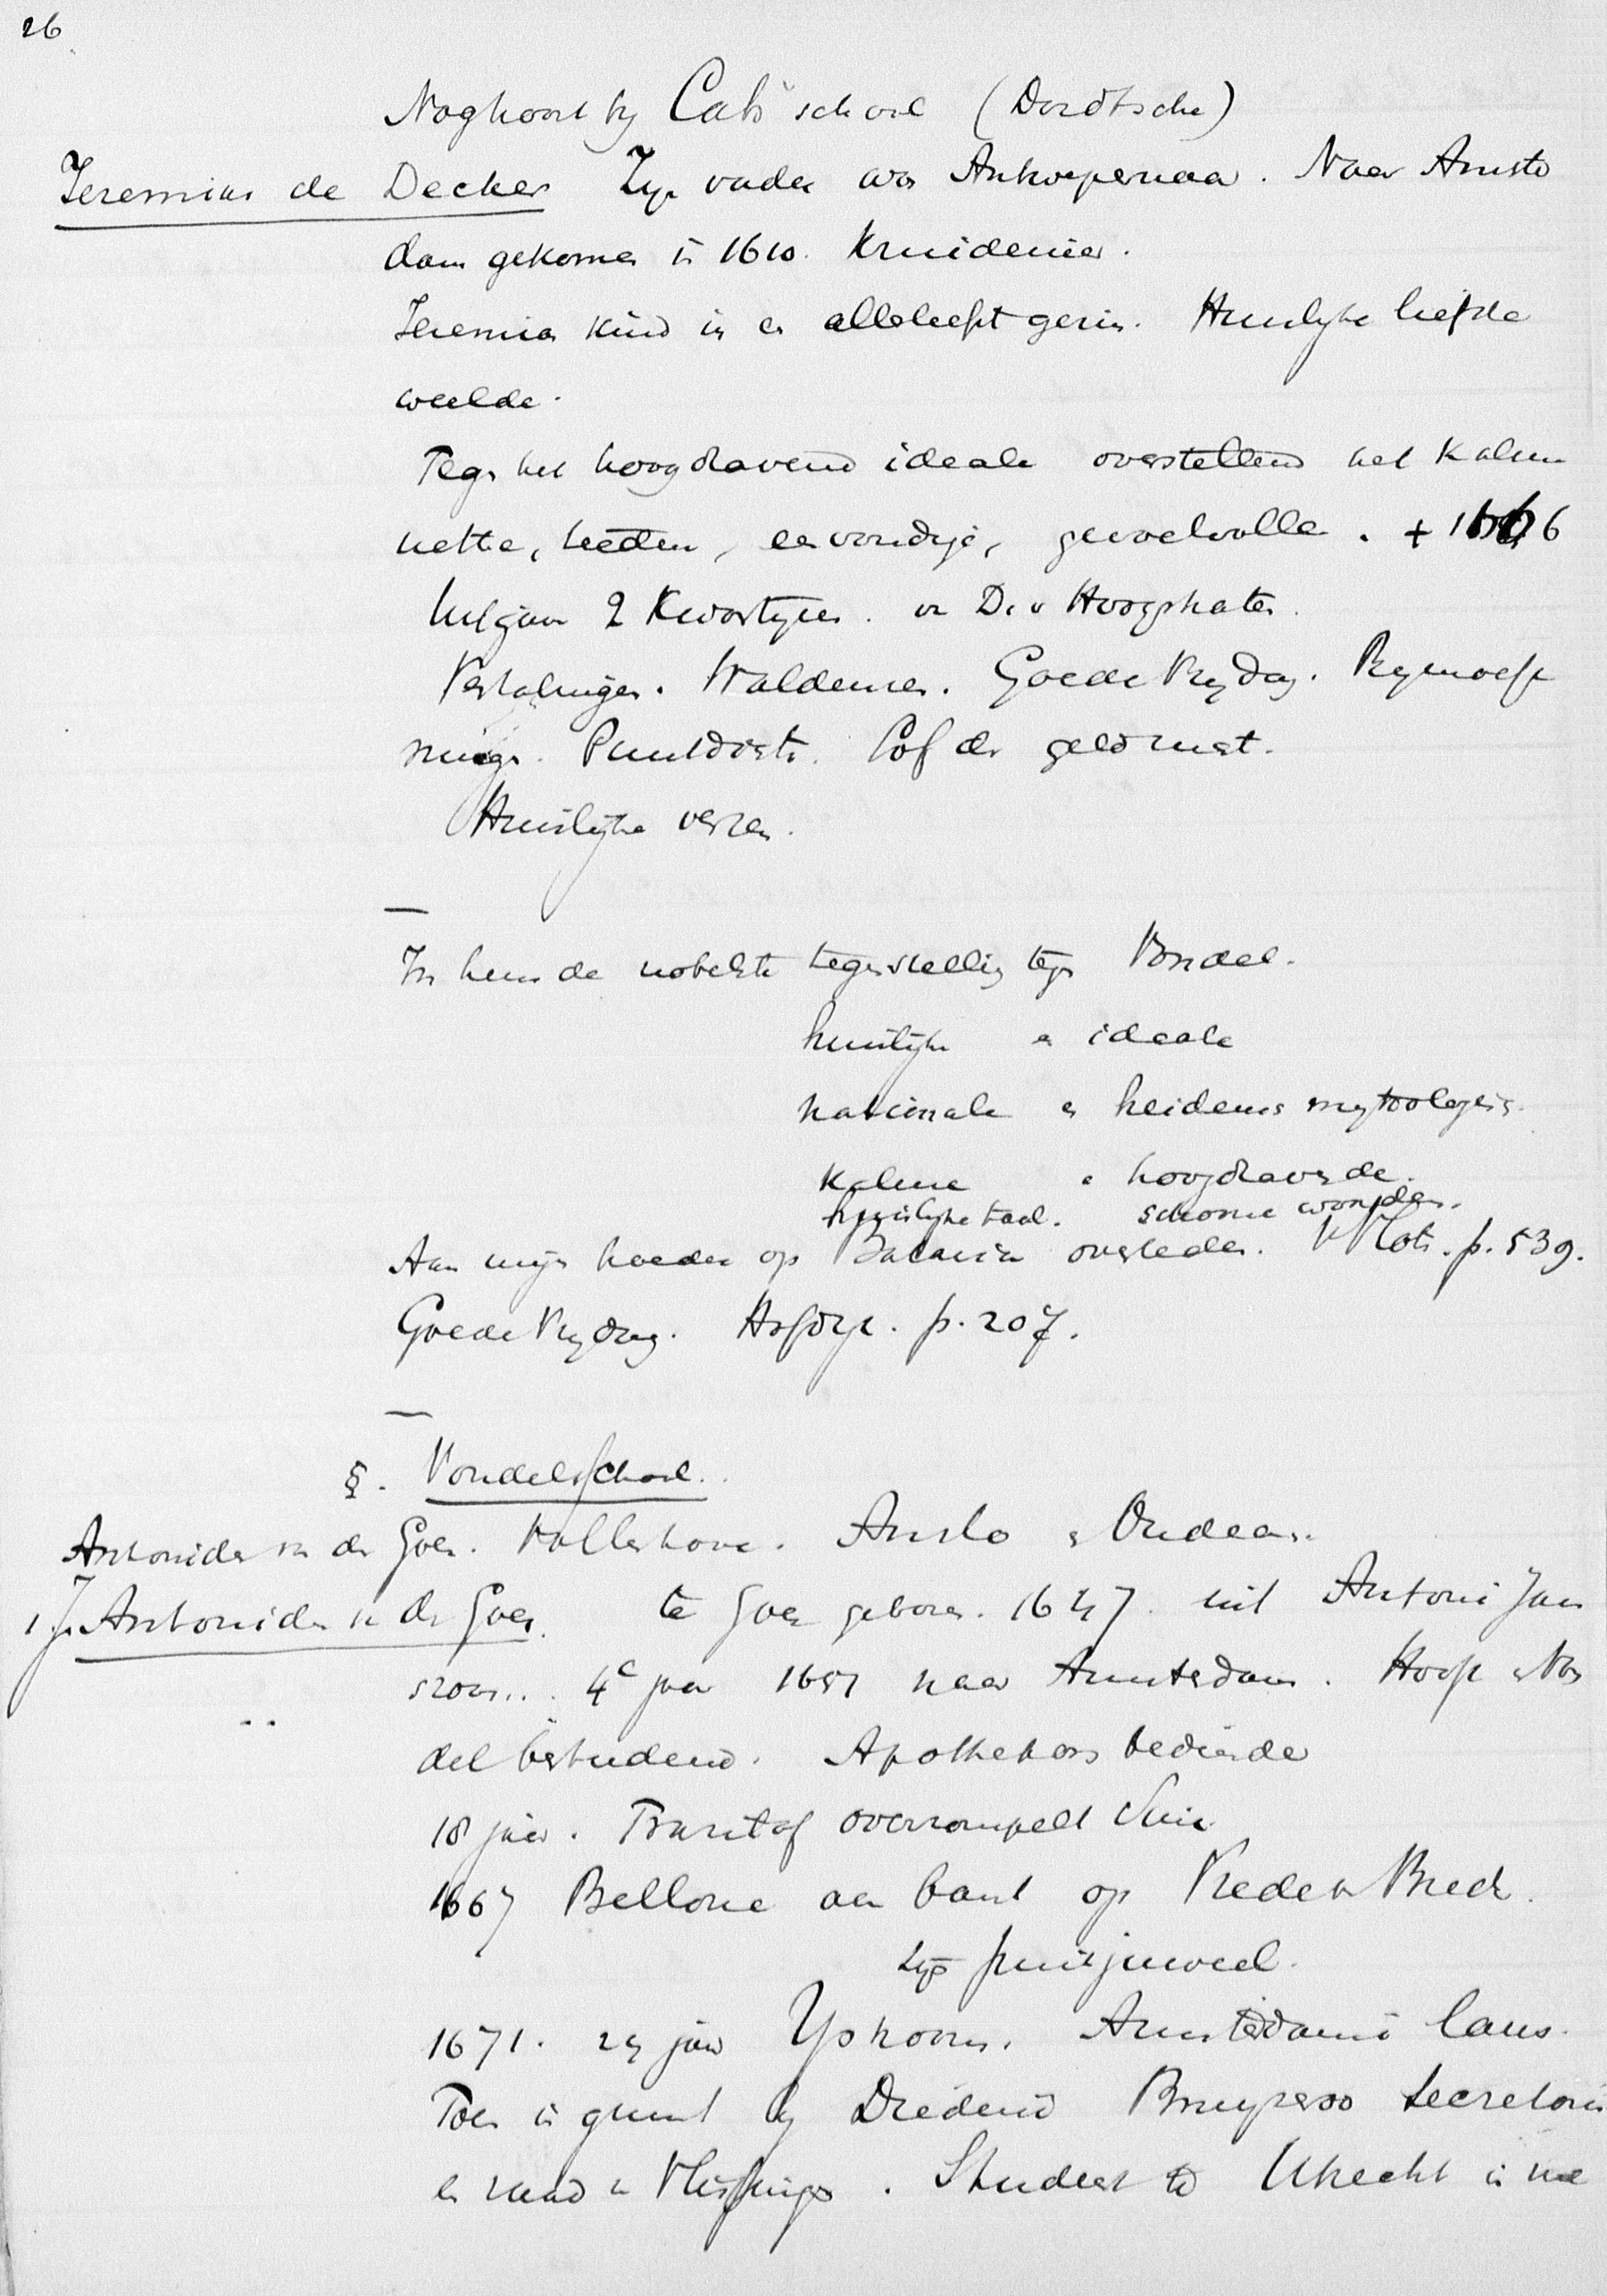 26
Nog hoort by Cats' school (Dordtsche)
Jeremias de Decker Zyn vader was Antwerpenaar. Naar Amster
dam gekomen in 1610. Kruidenier.
Jeremias kind in en allerliefst gezin. Huislyke liefde
weelde.
Tegen het hoogdravend ideale overstellend het kalm
nette, , eenvoudige, gevoelvolle. + 1666
2 Kwartynen. Dr. v Hoogstraten.
Vertalingen. Goede Vrydag. Rymoefe
ningen. Puntdicht. Lof der geldzucht.
Huislyke verzen.
—
In hem de nobelste tegenstelling tegen Vondel.
huislyke en ideale
nationale en heidens mythologisch.
Kalme en hoogdravende.
huislyke taal. schoone woorden.
Aan mijn broeder op Batavia overleden. V Vloten. p. 539.
Goede Vrydag. Hofdyk. p. 207.
—
§. Vondelschool.
Antonides vn der Goes. Vollenhove. Anslo en Oudaan.
1 J. Antonides vn der Goes. te Goes geboren. 1647. uit Antoni Jans
zoon... 4e jaar 1651 naar Amsterdam. Hooft en Von
del bestudeerend. Apothekers bediende
18 jaar. Trazil of overrompelt Sina
1667 Bellone aan band op Vrede v Breda.
zyn puikjuweel.
1671. 24 jaar Ystroom. Amsterdams laus.
Toen in gunst by Diederic Buyzero secretaris
en raad in Vlissingen. Student te Utrecht in me